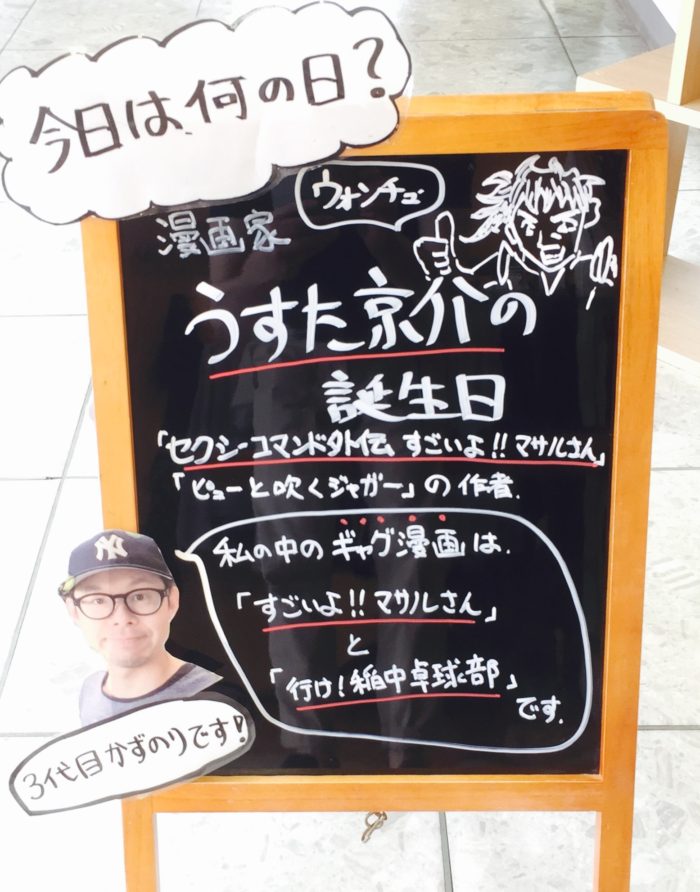 今日は何の日?
ウォンチュ
漫画家
うすた京介の
誕生日
「セクシーコマンド外伝 すごいよ!! マサルさん」
「ピューと吹くジャガー」の作者.
私の中のギャグ漫画は.
「すごいよ!! マサルさん」
と
「行け!稲中卓球部」
です.
NY
3代目かずのりです!